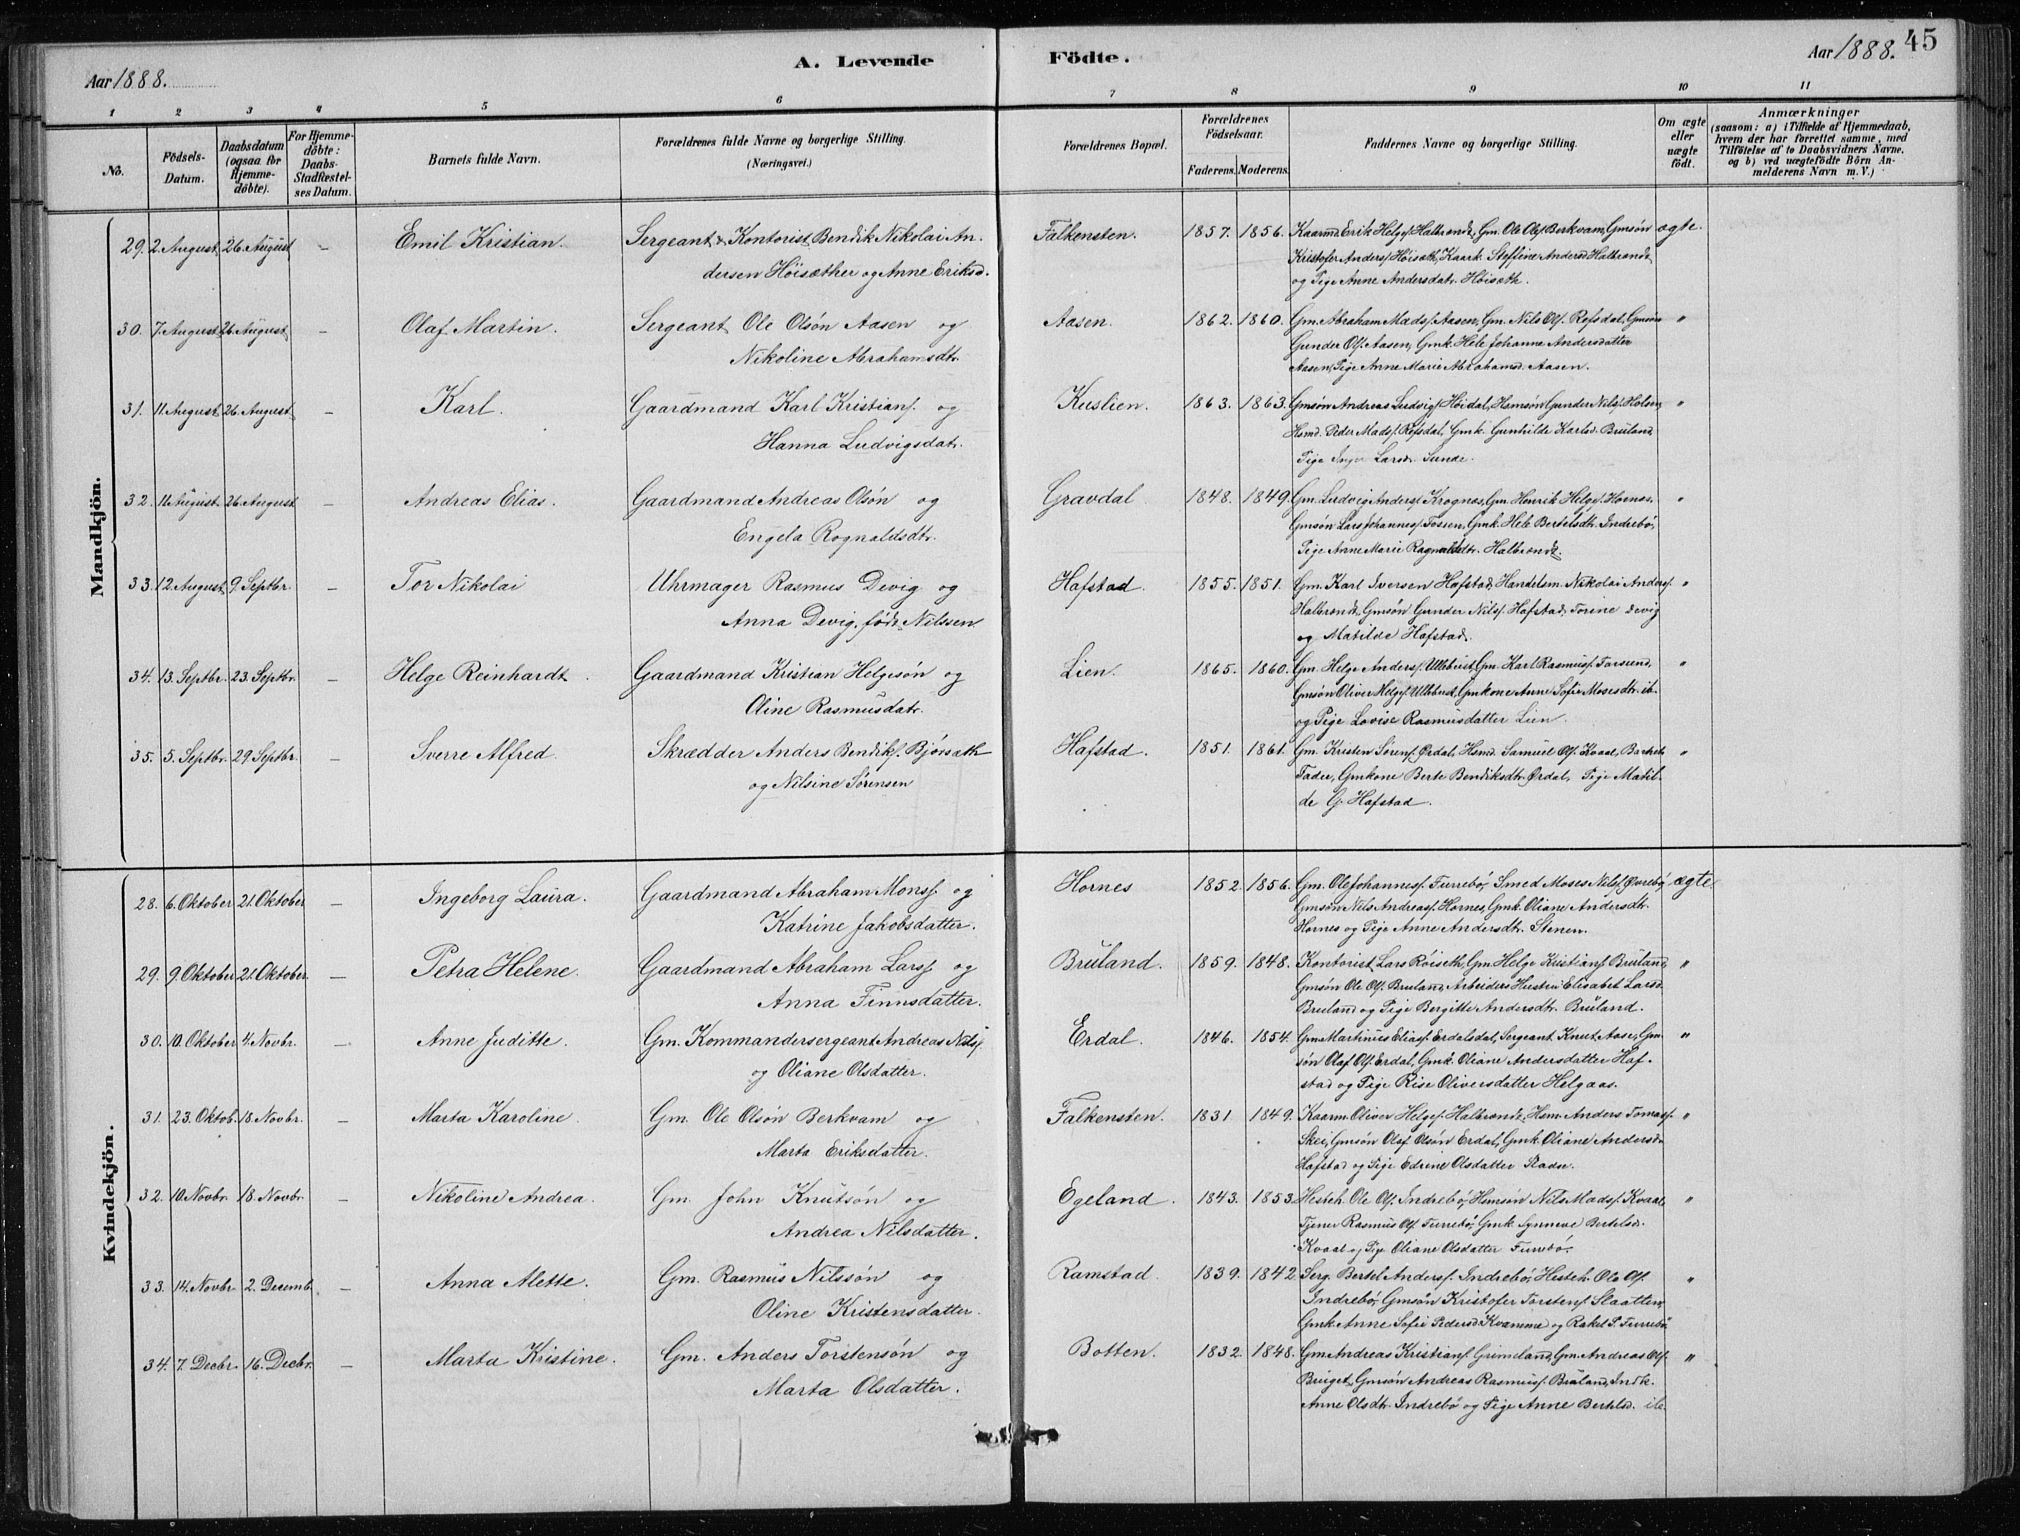 45
A. Levende Födte.
Aar 1888. Aar 1888.
1 2 3 4 5 6 7 8 9 10 11
No. Födsels-Datum. Daabsdatum (ogsaa för Hjemme-döbte). For Hjemme-döbte: Daabs-Stadfæstel-ses Datum. Barnets fulde Navn. Forældrenes fulde Navne og borgerlige Stilling. (Næringsvei.) Forældrenes Bopæl. Forældrenes Födselsaar. Faderens. Moderens. Faddernes Navne og borgerlige Stilling. Om ægte eller uægte födt. Anmærkninger
(saasom: a) i Tilfælde af Hjemmedaab,
hvem der har forrettet samme, med
Tilföielse af to Daabsvidners Navne,
og b) ved uægtefödte Börn An-
melderens Navn m. V.)
Mandkjön.
29. 2 August 26 August – Emil Kristian. Sergeant & Kontorist Bendik Nikolai An- Falkensten. 1857. 1856. Kaarmd Erik Helges. Halbrende, Gm. Ole Ols. Berkvam, Gmsön ægte.
dersen Höisæther og Anne Eriksd. Kristofer Anders. Höisæth, Kaark. Steffine Andersd Halbrende
og Pige Anne Andersdatr. Höisæth.
30. 7 August 26 August – Olaf Martin. Sergeant Ole Olsön Aasen og Aasen. 1862. 1860. Gm. Abraham Mads. Aasen, Gm. Nils Ols. Refsdal, Gmsön "
Nikoline Abrahamsdtr. Gunder Ols. Aasen, Gmk. Hele Johanne Andersdatter
Aasen, Pige Anne Marie Abrahamsd. Aasen.
31. 11 August 26 August – Karl. Gaardmand Karl Kristians. og Kuslien. 1863. 1863. Gmsön Andreas Ludvigs. Höidal, Hsmsön Gunder Nils. Holsen, "
Hanna Ludvigsdatr. Hsmd. Peder Mads. Refsdal, Gmk. Gunhilde Karlsd. Bruland,
Pige Inger Larsd. Sunde.
32. 11 August 26 August – Andreas Elias. Gaardmand Andreas Olsön og Gravdal. 1848. 1849. Gm. Ludvig Anders. Krognæs, Gm. Henrik Helges. Hornes, "
Engela Rognaldsdtr. Gmsön Lars Johannes. Fossen, Gmk. Hele Bertelsdtr. Indrebö,
Pige Anne Marie Ragnaldsdtr. Halbrende.
33. 12 August 9 Septbr. – Tor Nikolai Uhrmager Rasmus Devig og Hafstad 1855. 1851. Gm. Karl Iversen Hafstad, Handelsm. Nikolai Anders. "
Anna Devig, födt Nilssen Halbrende, Gmsön Gunder Nils. Hafstad, Torine Devig
og Matilde Hafstad.
34. 13. Septbr. 23. Septbr. – Helge Reinhardt. Gaardmand Kristian Helgesön og Lien. 1865. 1860. Gm. Helge Anders. Ulltveit, Gm. Karl Rasmus. Farsund, "
Oline Rasmusdatr. Gmsön Oliver Helges. Ulltveit, Gmkone Anne Sofie Mosesdtr. ib.
og Pige Lovise Rasmusdatter Lien.
35. 5. Septbr. 29. Septbr. – Sverre Alfred. Skrædder Anders Bendiks. Bjørsæth Hafstad. 1851. 1861. Gm. Kristen Sörens. Ørdal, Hsmd. Samuel Ols. Kvaal, Barnets "
og Nilsine Sörensen Fader, Gmkone Berte Bendiksdtr. Ørdal, Pige Matil-
de G. Hafstad.
Kvindekjön.
28. 6. Oktober 21. Oktober – Ingeborg Laura. Gaardmand Abraham Monss. og Hornes 1852. 1856. Gm. Ole Johannes. Furrebö, Smed Moses Nils. Övrebö, ægte.
Katrine Jakobsdatter. Gmsön Nils Andreas. Hornes, Gmk. Oliane Andersdtr.
Hornes og Pige Anne Andersdtr. Stenen.
29. 9. Oktober 21. Oktober. – Petra Helene. Gaardmand Abraham Larss. og Bruland. 1859. 1848. Kontorist Lars Röiseth, Gm. Helge Kristians. Bruland, "
Anna Finnsdatter. Gmsön Ole Ols. Bruland, Arbeiders Hustru Elisabet Larsd.
Bruland og Pige Bergitte Andersdtr. Bruland.
30. 10. Oktober 4. Novbr. – Anne Juditte. Gm. Kommandersergeant Andreas Nils. Erdal. 1846. 1854. Gm. Martinus Elias. Erdalsdal, Sergeant Knut Aase, Gm- "
og Oliane Olsdatter. sön Olaf Ols. Erdal, Gmk. Oliane Andersdatter Haf-
stad og Pige Rise Oliversdatter Helgaas.
31. 23. Oktob. 18. Novbr. – Marta Karoline. Gm. Ole Olsön Berkvam og Falkensten. 1831. 1849. Kaarm. Oliver Helges. Halbrende, Hsm. Anders Tomas. "
Marta Eriksdatter. Skei, Gmsön Olaf Olsön Erdal, Gmk. Oliane Andersd.
Hafstad og Pige Edrene Olsdatter
32. 10. Novbr. 18. Novbr. – Nikoline Andrea. Gm. John Knutsön og Egeland. 1843. 1853. Hesteh. Ole Ols. Indrebö, Hsmsön Nils Mads. Kvaal, "
Andrea Nilsdatter. Tjener Rasmus Ols. Furrebö, Gmk. Synneve Bertelsd.
Kvaal og Pige Oliane Olsdatter Furrebö.
33. 14. Novbr. 2. Decemb. – Anna Alette. Gm. Rasmus Nilssön og Ramstad. 1839. 1842 Serg. Bertel Anders. Indrebö, Hesteh. Ole Ols. "
Oline Kristensdatter. Indrebö, Gmsön Kristofer Torstens. Slaatten,
Gmk. Anne Sofie Pedersd Kvamme og Rakel P. Furrebö.
34. 7. Decbr. 16. Decbr. – Marta Kristine. Gm. Anders Torstensön og Botten. 1832. 1848. Gm. Andreas Kristians. Grimeland, Gm. Andreas Ols. "
Marta Olsdatter. Bruget, Gmsön Andreas Rasmus. Bruland, Indk.
Anne Olsdtr. Indrebö og Pige Anne Bertelsd. ib.